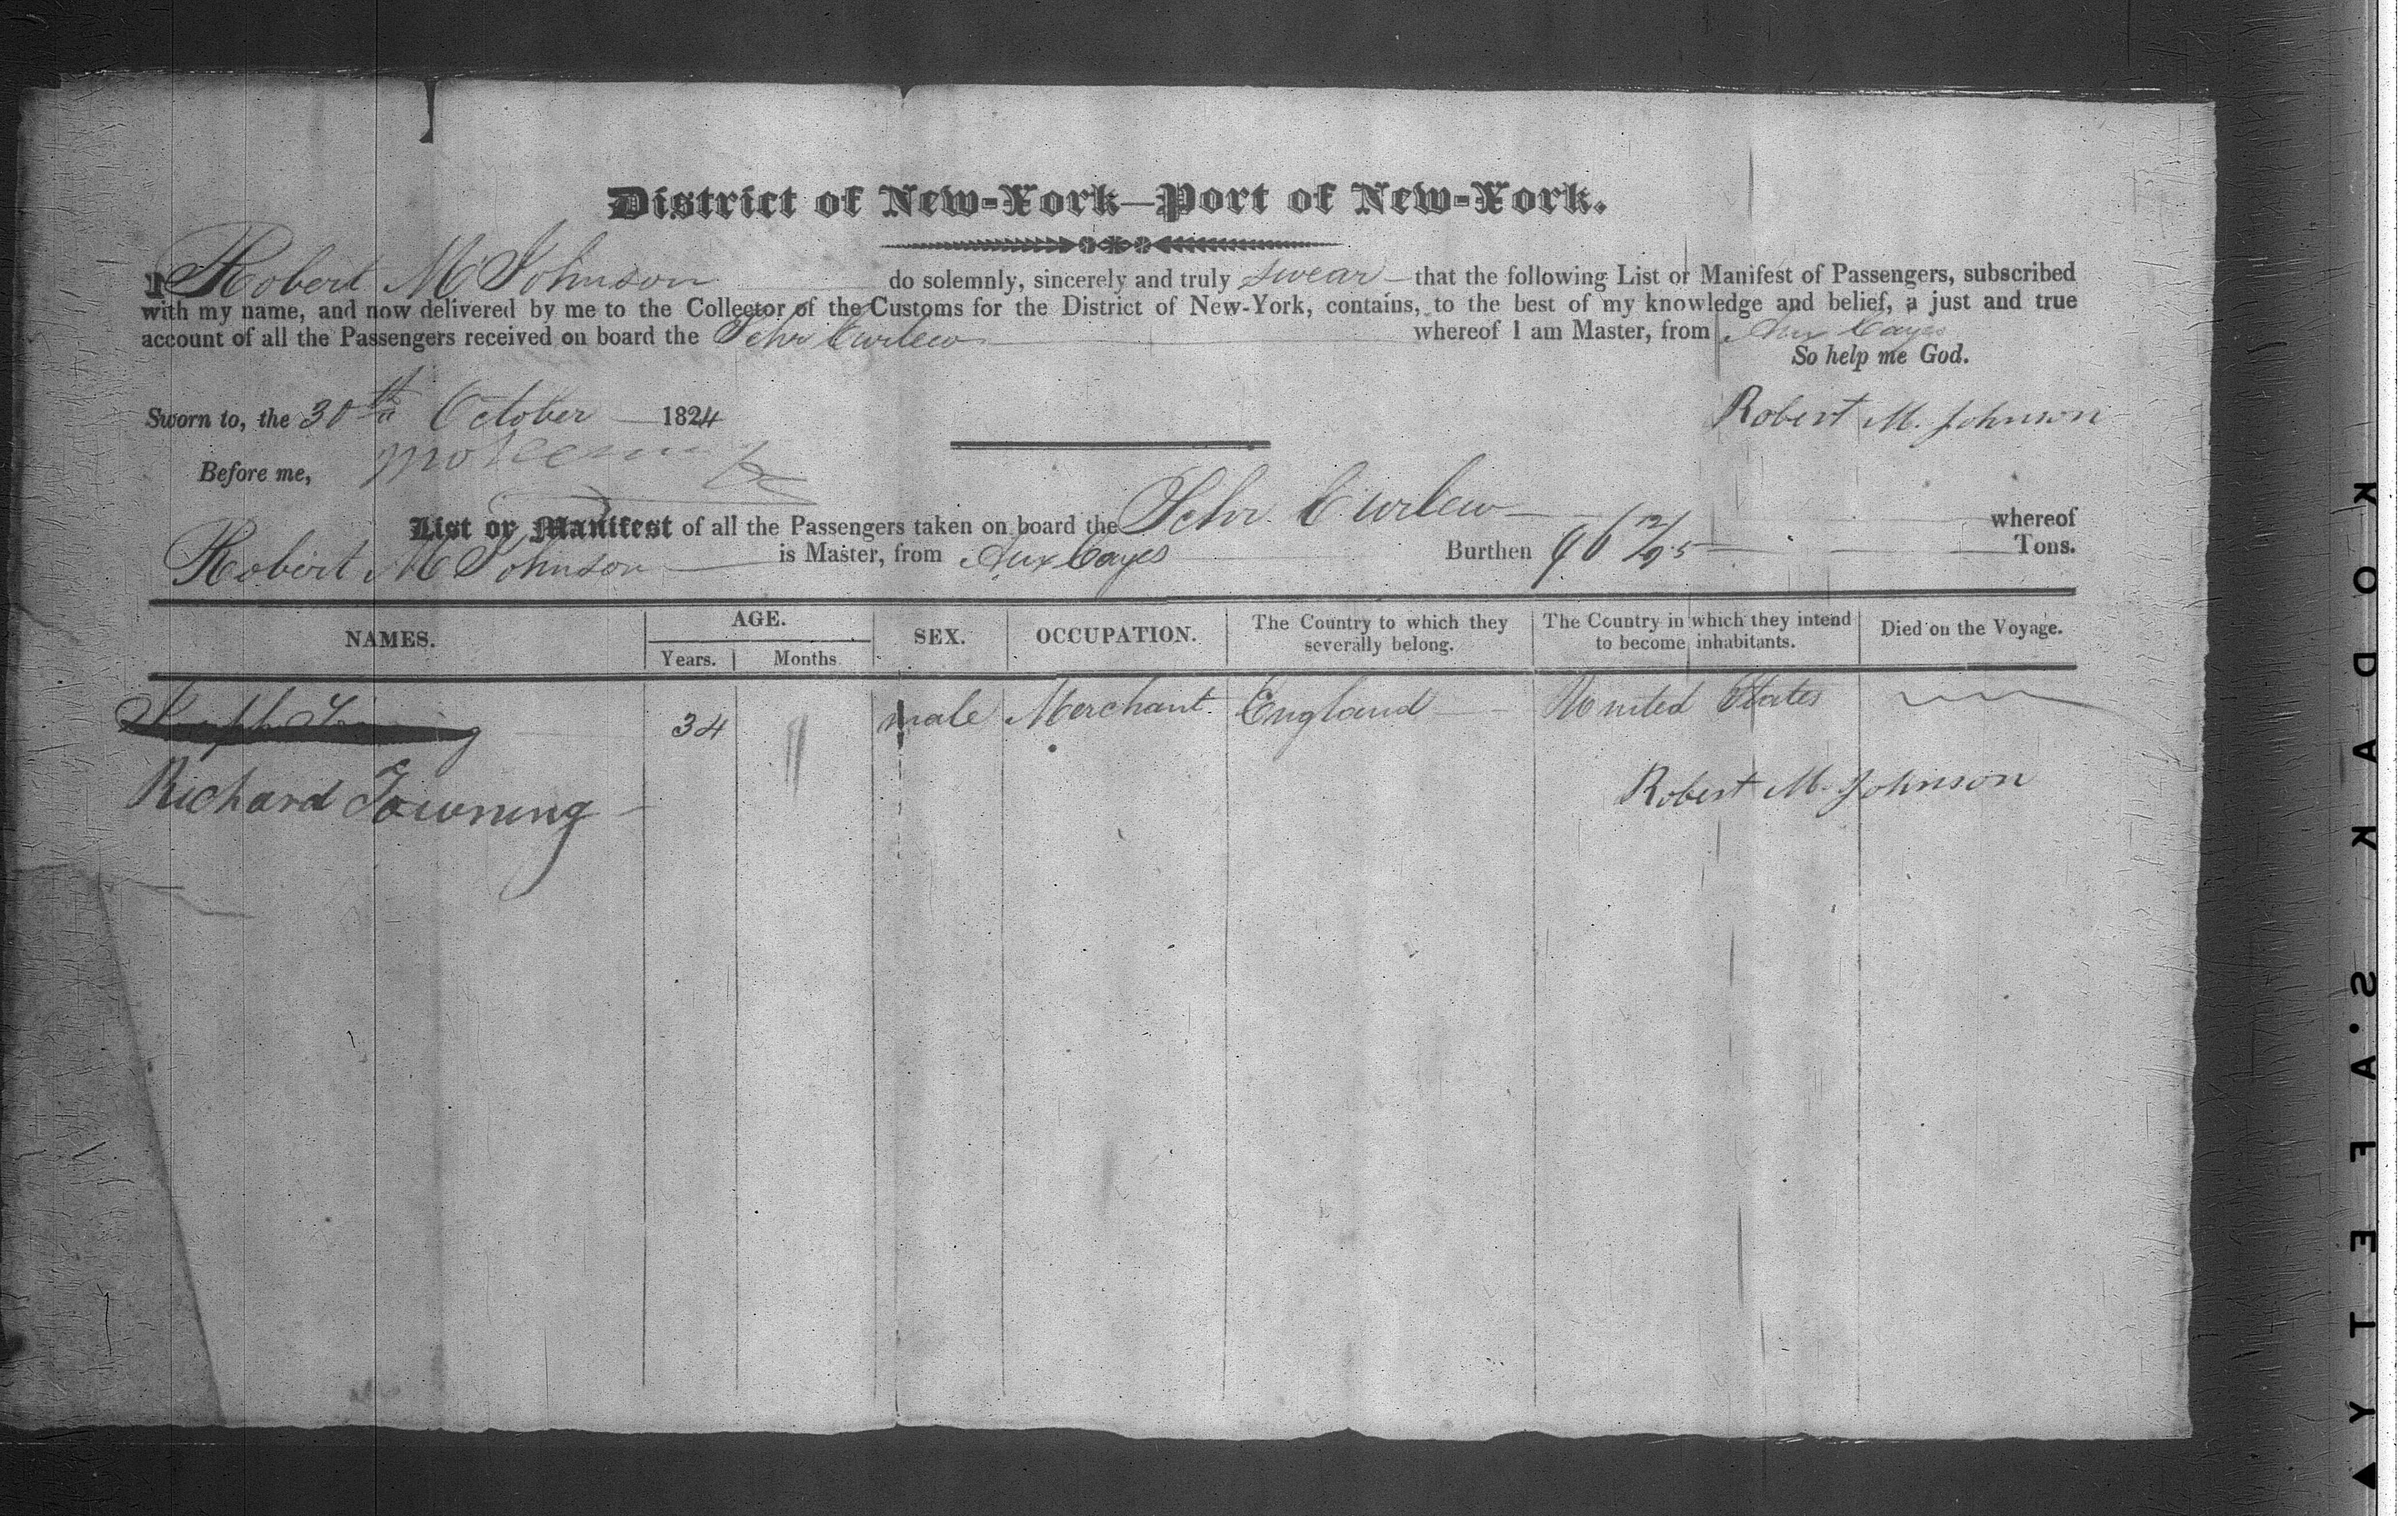 District of New-York—Port of New-York.
I Robert M Johnson do solemnly, sincerely and truly swear that the following List or Manifest of Passengers, subscribed
with my name, and now delivered by me to the Collector of the Customs for the District of New-York, contains, to the best of my knowledge and belief, a just and true
account of all the Passengers received on board the Schr Curlew whereof I am Master, from Aux Cayes
So help me God.
Sworn to, the 30th October 1824 Robert M. Johnson
Before me,
List or Manifest of all the Passengers taken on board the Schr. Curlew whereof
Robert M Johnson is Master, from Aux Cayes Burthen 96 2/95 Tons.
NAMES. AGE. Years. Months SEX. OCCUPATION. The Country to which they severally belong. The Country in which they intend to become inhabitants. Died on the Voyage.
34 male Merchant England United States
Richard Towning Robert M. Johnson
KODAK SAFETY